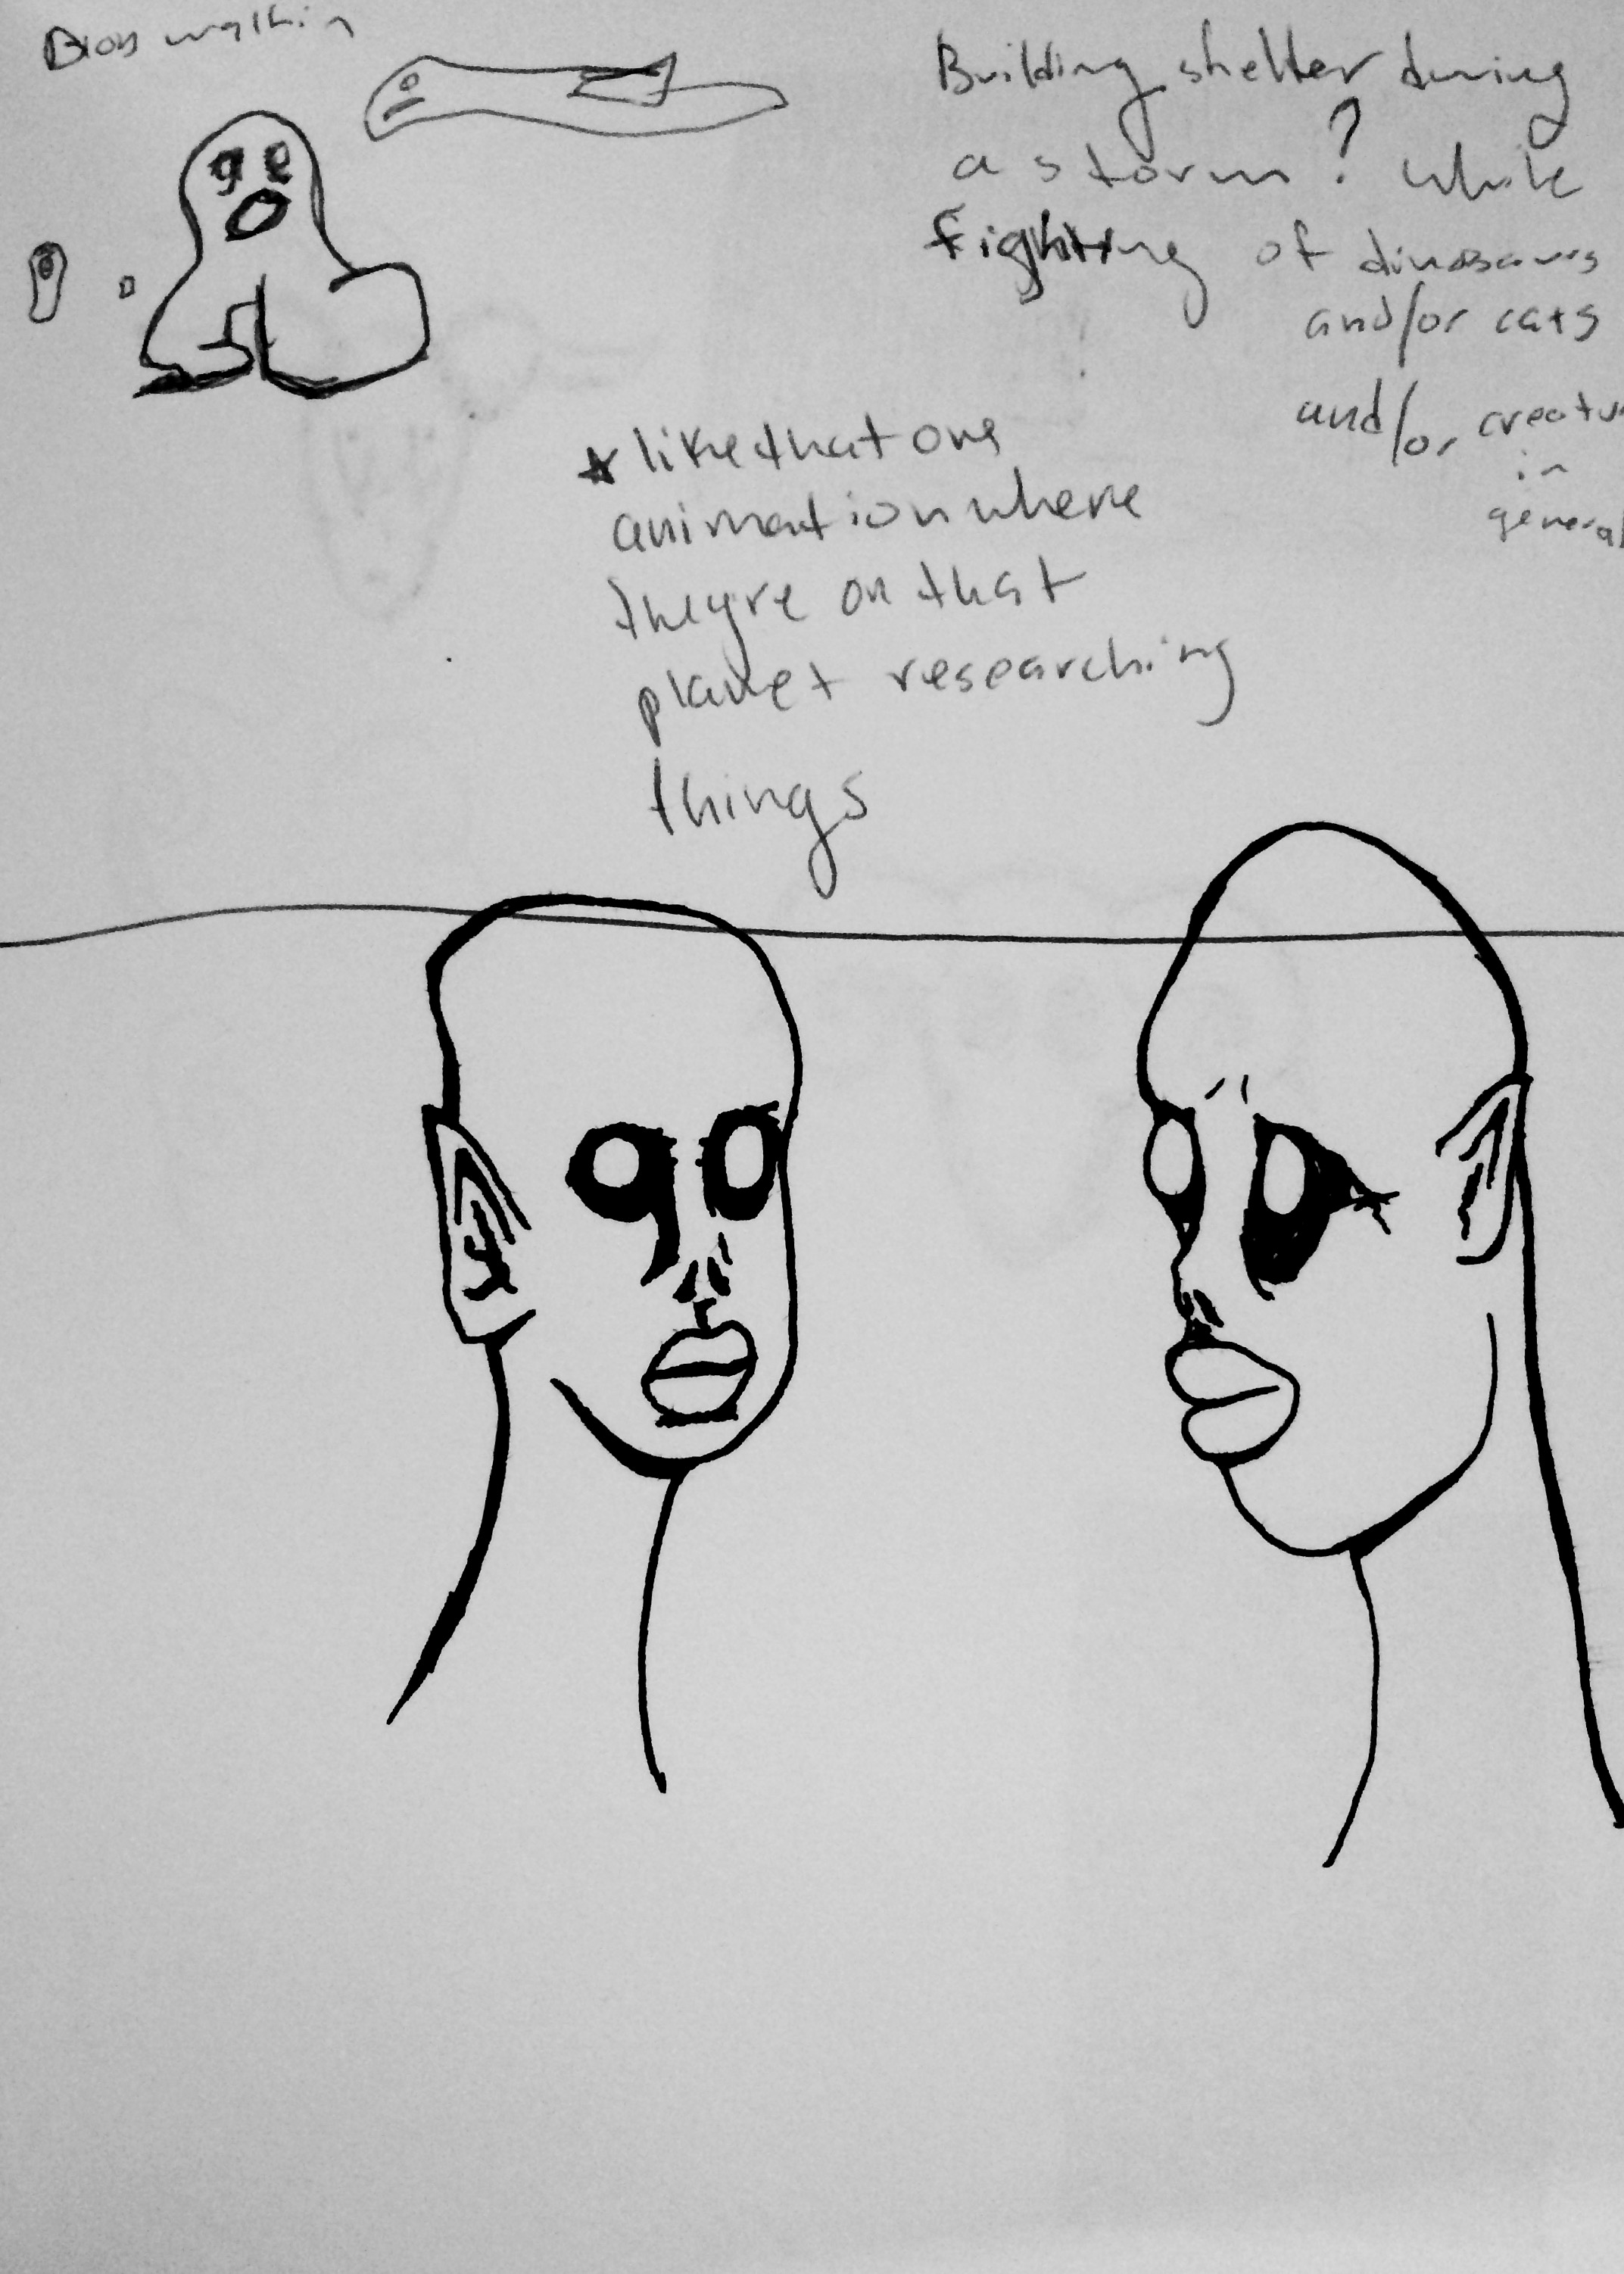 Building shelter during
a storm? while
fighting of dinosaurs
and/or cats
and/or creatu
in
general
* like that one
animation where
theyre on that
planet researching
things